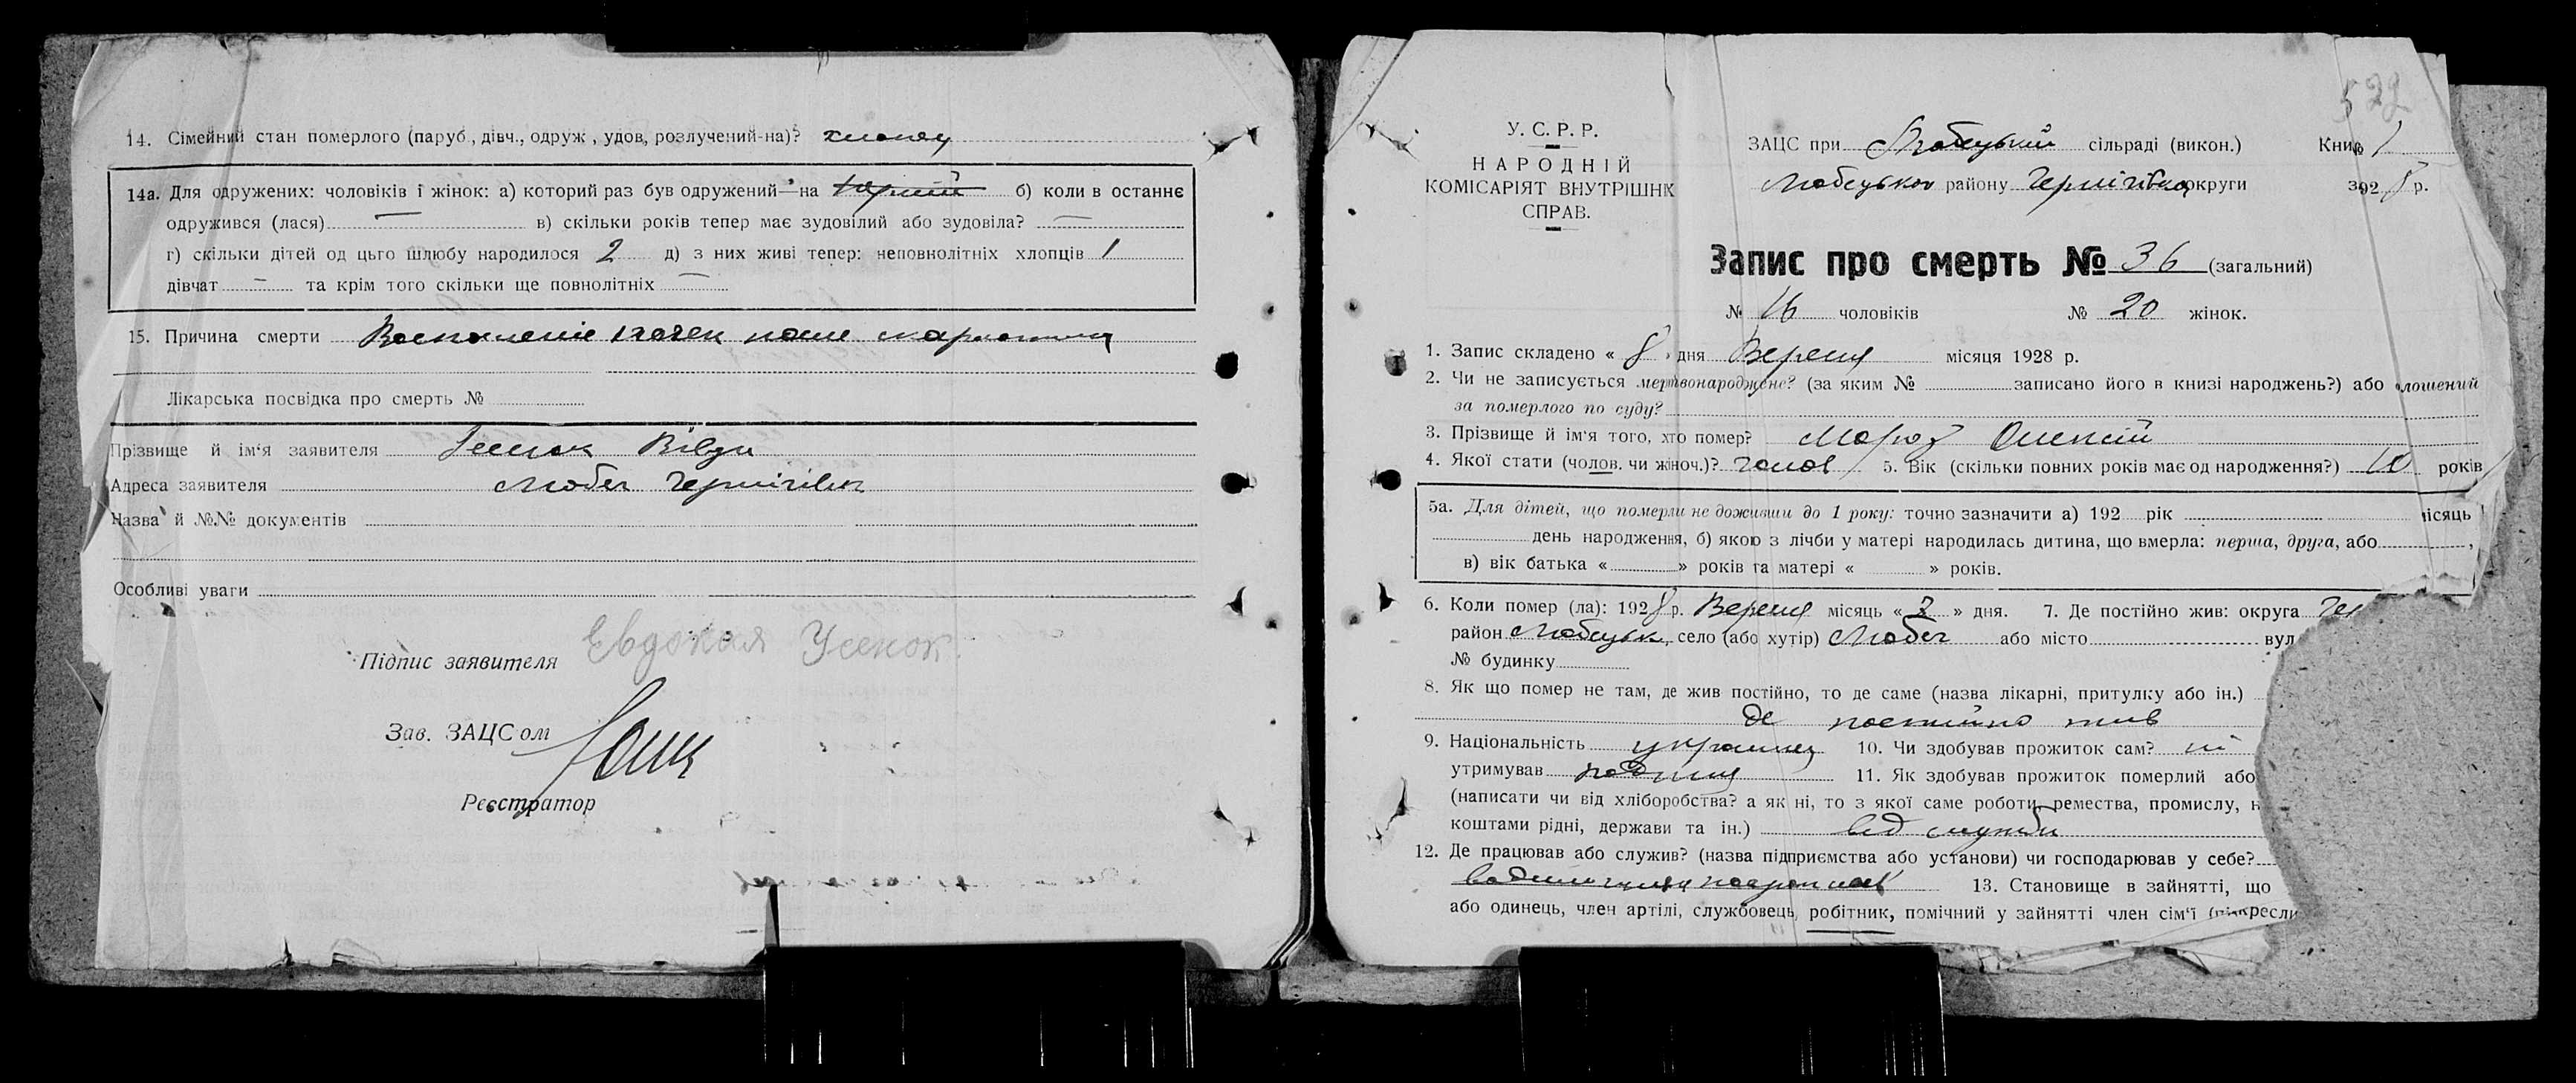 14. Сімейний стан померлого (паруб, дівч., одруж, удов, розлучений-на)? хлопец
14а. Для одружених: чоловіків і жінок: а) котрий раз був одружений—на б) коли в останнє
одружився (лася) — в) скільки років тепер має зудовілий або зудовіла? —
г) скільки дітей од цього шлюбу народилося 2 д) з них живі тепер: неповнолітніх хлопців 1
дівчат — та крім того скільки ще повнолітніх —
15. Причина смерти Воспаленіе почек после скарлатини
Лікарська посвідка про смерть №
Прізвище й ім'я заявителя Усенок Вівдя
Адреса заявителя Любеч Чернігівк
Назва й №№ документів
Особливі уваги
Підпис заявителя Евдокая Усенок.
Зав. ЗАЦСом
Реєстратор
532
У. С. Р. Р.
НАРОДНІЙ
КОМІСАРІЯТ ВНУТРІШНІХ
СПРАВ.
ЗАЦС при Любецький сільраді (викон.) Книг № 1
Любецького району Чернігівської округи за 1928 р.
Запис про смерть № 36 (загальний)
№ 16 чоловіків № 20 жінок.
1. Запис складено « 8 » дня Вересня місяця 1928 р.
2. Чи не записується мертвонароджене? (за яким № записано його в книзі народжень?) або олошений
за померлого по суду?
3. Прізвище й ім'я того, хто помер? Мороз Олексій
4. Якої стати (чолов. чи жіноч.)? чолов 5. Вік (скільки повних років має од народження?) 10 років
5а. Для дітей, що померли не доживши до 1 року: точно зазначити а) 192 рік місяць
день народження, б) якою з лічби у матері народилась дитина, що вмерла: перша, друга, або ,
в) вік батька « » років та матері « » років.
6. Коли помер (ла): 1928 р. Вересня місяць « 7 » дня. 7. Де постійно жив: округа Чер
район Любецьк, село (або хутір) Любеч або місто вул
№ будинку
8. Як що помер не там, де жив постійно, то де саме (назва лікарні, притулку або ін.)
де постійно жив
9. Національність українец 10. Чи здобував прожиток сам? ні
утримував 11. Як здобував прожиток померлий або
(написати чи від хліборобства? а як ні, то з якої саме роботи, ремества, промислу, н
коштами рідні, держави та ін.) від служби
12. Де працював або служив? (назва підприємства або установи) чи господарював у себе?
13. Становище в зайнятті, що
або одинець, член артілі, службовець, робітник, помічний у зайнятті член сім'ї (підкресли